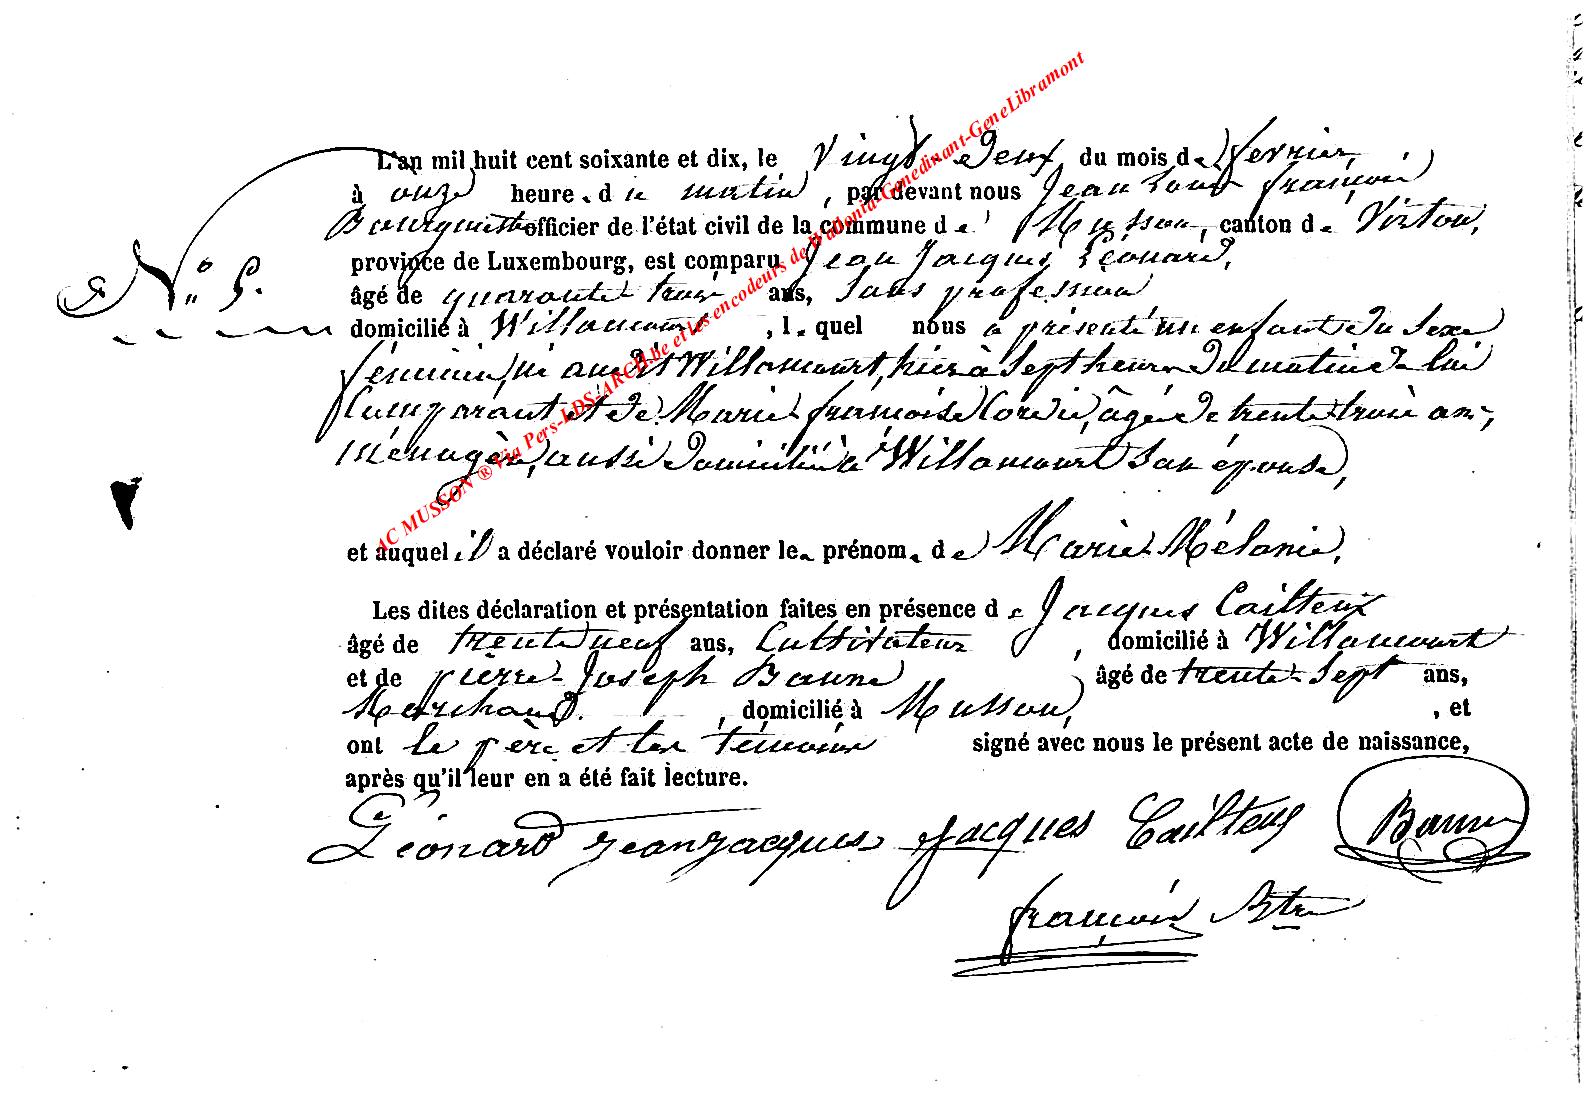 L'an mil huit cent soixante et dix, le Vingt deux du mois de février,
à onze heure. du matin, par devant nous Jean Louis françois
Bourgmestre officier de l'état civil de la commune de Musson, canton de Virton,
province de Luxembourg, est comparu Jean Jacques Léonard,
N° 5.
âgé de quarante trois ans, sans profession
domicilié à Willancourt, lequel nous a présenté un enfant du sexe
féminin, né audit Willancourt, hier à sept heures du matin de lui
Comparant et de Marie françoise Cordié, âgée de trente trois ans,
ménagère, aussi domiciliée à Willancourt son épouse,
et auquel il a déclaré vouloir donner le prénom de Marie Mélanie.
Les dites déclaration et présentation faites en présence de Jacques Cailteux
âgé de trente neuf ans, Cultivateur, domicilié à Willancourt
et de pierre Joseph Baune âgé de trente sept ans,
Marchand, domicilié à Musson, , et
ont le père et les témoins signé avec nous le présent acte de naissance,
après qu'il leur en a été fait lecture.
Léonard Jean Jacques Jacques Cailteux Baune
françois Btre
AC MUSSON ® Via Pers-LDS-ARCH.be et les encodeurs de Wallonia-Genedinant-GeneLibramont